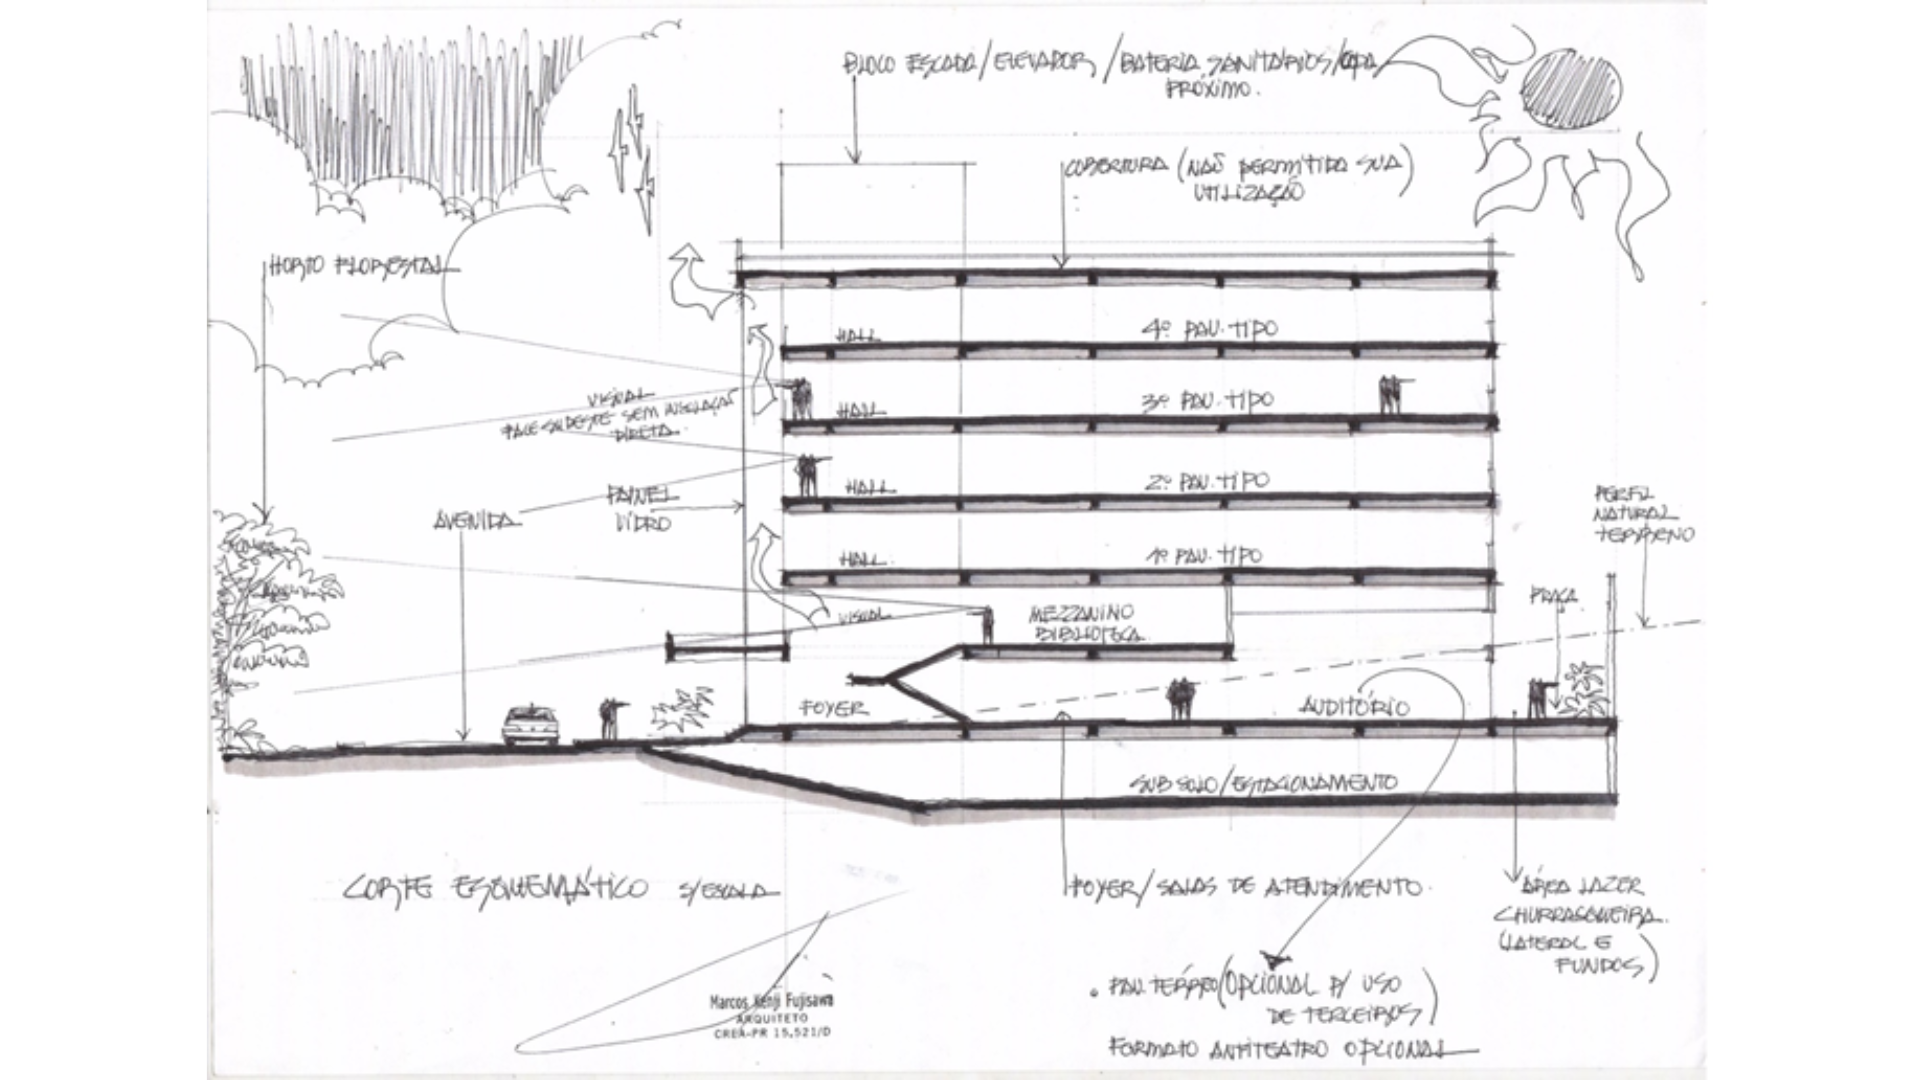 BLOCO ESCADA/ELEVADOR/BATERIA SANITÁRIOS/COPA
PRÓXIMO.
COBERTURA (NÃO PERMITIDA SUA
UTILIZAÇÃO)
HORTO FLORESTAL
HALL
4º PAV. TIPO
VISUAL
FACE SUDESTE SEM INSOLAÇÃO
DIRETA.
HALL
3º PAV. TIPO
HALL
2º PAV. TIPO
PAINEL
VIDRO
AVENIDA
PERFIL
NATURAL
TERRENO
HALL
1º PAV. TIPO
PRAÇA
VISUAL
MEZZANINO
BIBLIOTECA
FOYER
AUDITÓRIO
SUBSOLO/ESTACIONAMENTO
CORTE ESQUEMÁTICO S/ESCALA
FOYER/SALAS DE ATENDIMENTO.
ÁREA LAZER
CHURRASQUEIRA.
(LATERAL E
FUNDOS)
• PAV. TÉRREO (OPCIONAL P/ USO
DE TERCEIROS)
FORMATO ANFITEATRO OPCIONAL
Marcos Kenji Fujisawa
ARQUITETO
CREA-PR 15.521/D